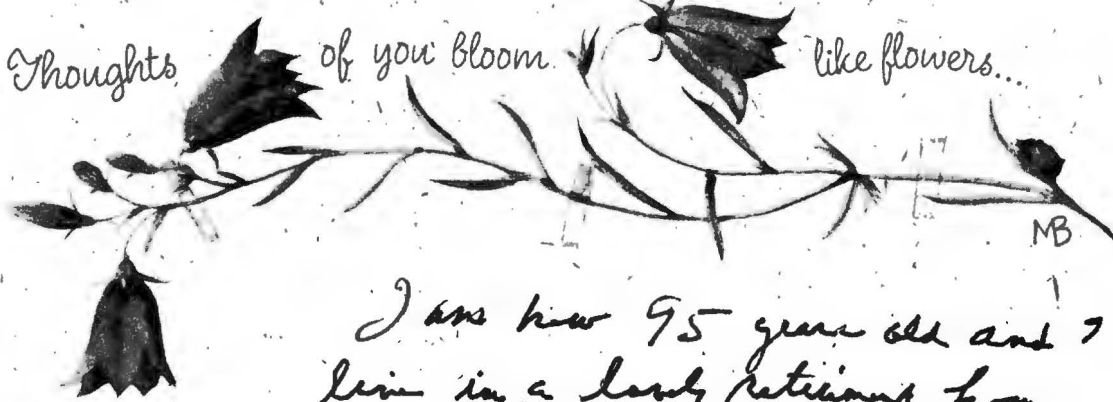 Thoughts of you bloom like flowers...
MB
I am now 95 years old and I
live in a lovely retirement